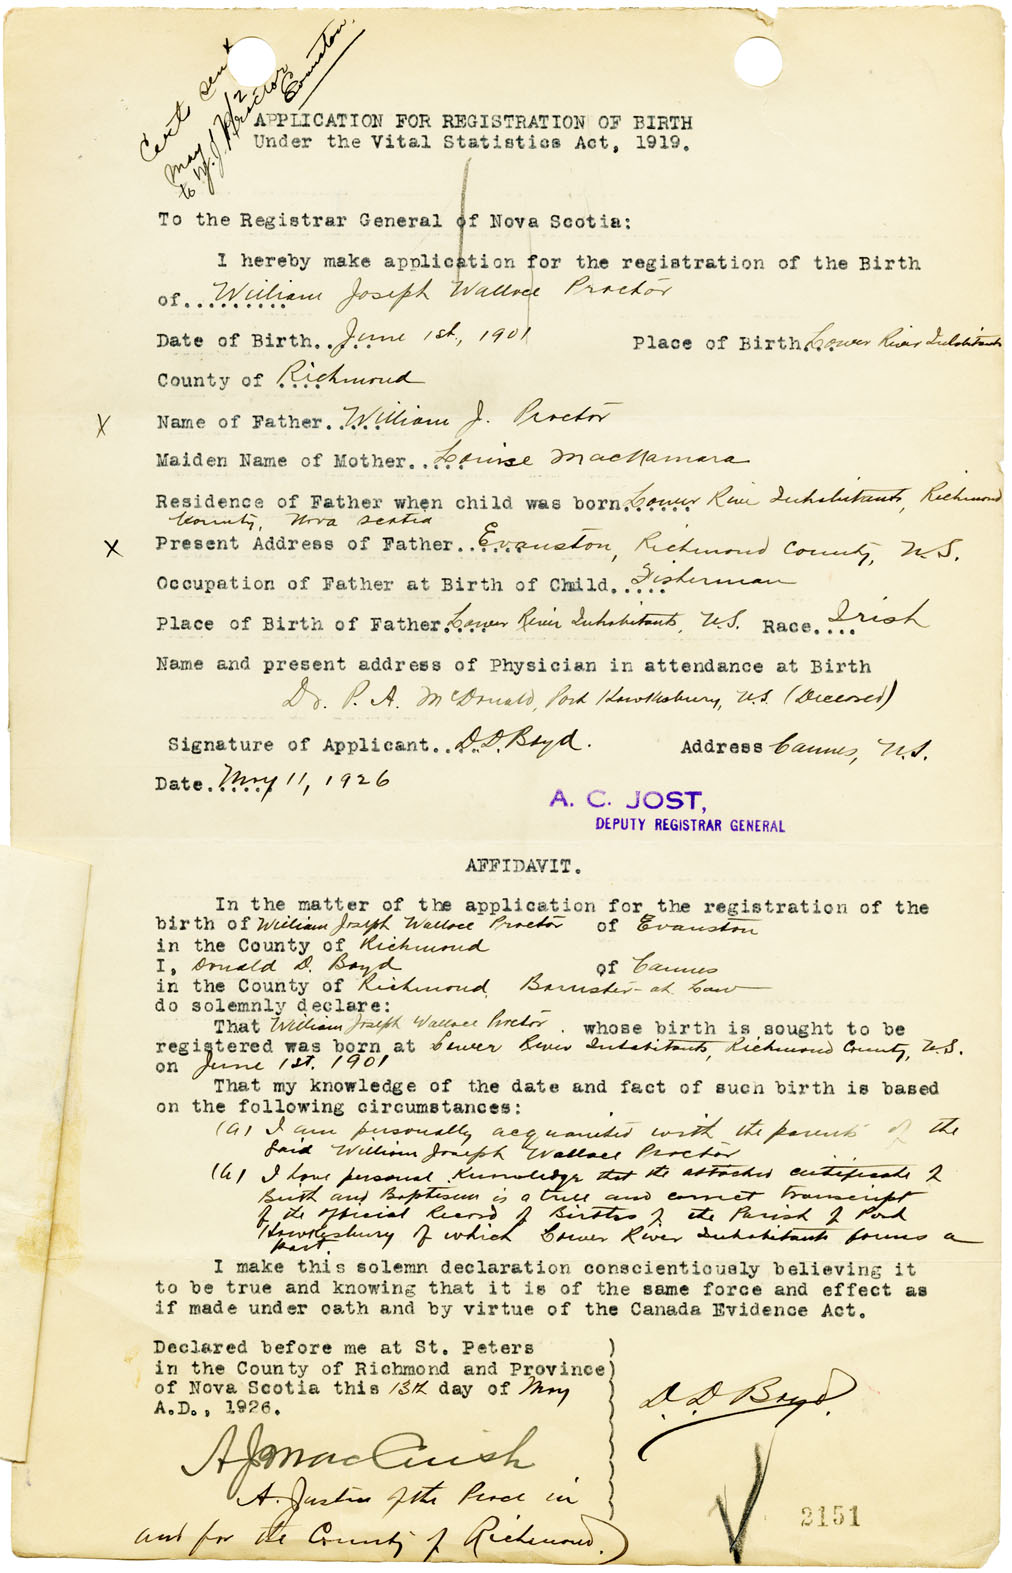 Cert sent
May
to W. J. Proctor
Evanston.
APPLICATION FOR REGISTRATION OF BIRTH
Under the Vital Statistics Act, 1919.
To the Registrar General of Nova Scotia:
I hereby make application for the registration of the Birth
of.......... William Joseph Wallace Proctor
Date of Birth...... June 1st, 1901 Place of Birth.... Lower River Inhabitants
County of .... Richmond
X Name of Father...... William J. Proctor
Maiden Name of Mother...... Louise MacNamara
Residence of Father when child was born....... Lower River Inhabitants, Richmond
County, Nova Scotia
X Present Address of Father....... Evanston, Richmond County, N.S.
Occupation of Father at Birth of Child...... Fisherman
Place of Birth of Father..... Lower River Inhabitants, N.S. Race.... Irish
Name and present address of Physician in attendance at Birth
Dr. P. A. McDonald, Port Hawkesbury, N.S. (Deceased)
Signature of Applicant.... D. D. Boyd. Address Cannes, N.S.
Date....... May 11, 1926
A. C. JOST,
DEPUTY REGISTRAR GENERAL
AFFIDAVIT.
In the matter of the application for the registration of the
birth of William Joseph Wallace Proctor of Evanston
in the County of Richmond
I, Donald D. Boyd of Cannes
in the County of Richmond, Barrister-at Law
do solemnly declare:
That William Joseph Wallace Proctor. whose birth is sought to be
registered was born at Lower River Inhabitants, Richmond County, N.S.
on June 1st. 1901
That my knowledge of the date and fact of such birth is based
on the following circumstances:
(a) I am personally acquainted with the parents of the
said William Joseph Wallace Proctor
(b) I have personal knowledge that the attached certificate of
Birth and Baptism is a true and correct transcript
of the official Record of Births of the Parish of Port
Hawkesbury of which Lower River Inhabitants forms a
part.
I make this solemn declaration conscientiously believing it
to be true and knowing that it is of the same force and effect as
if made under oath and by virtue of the Canada Evidence Act.
Declared before me at St. Peters
in the County of Richmond and Province
of Nova Scotia this 13th day of May
A.D., 1926.
D. D. Boyd.
A J MacCuish
A. Justice of the Peace in
and for the County of Richmond.
2151